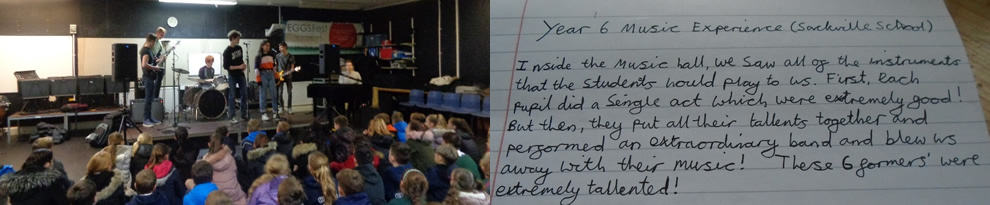 EGGSFest
Year 6 Music Experience (Sackville School)
Inside the Music hall, we saw all of the instruments
that the students would play to us. First, each
pupil did a single act which were extremely good!
But then, they put all their tallents together and
performed an extraordinary band and blew us
away with their music! These 6 formers' were
extremely tallented!